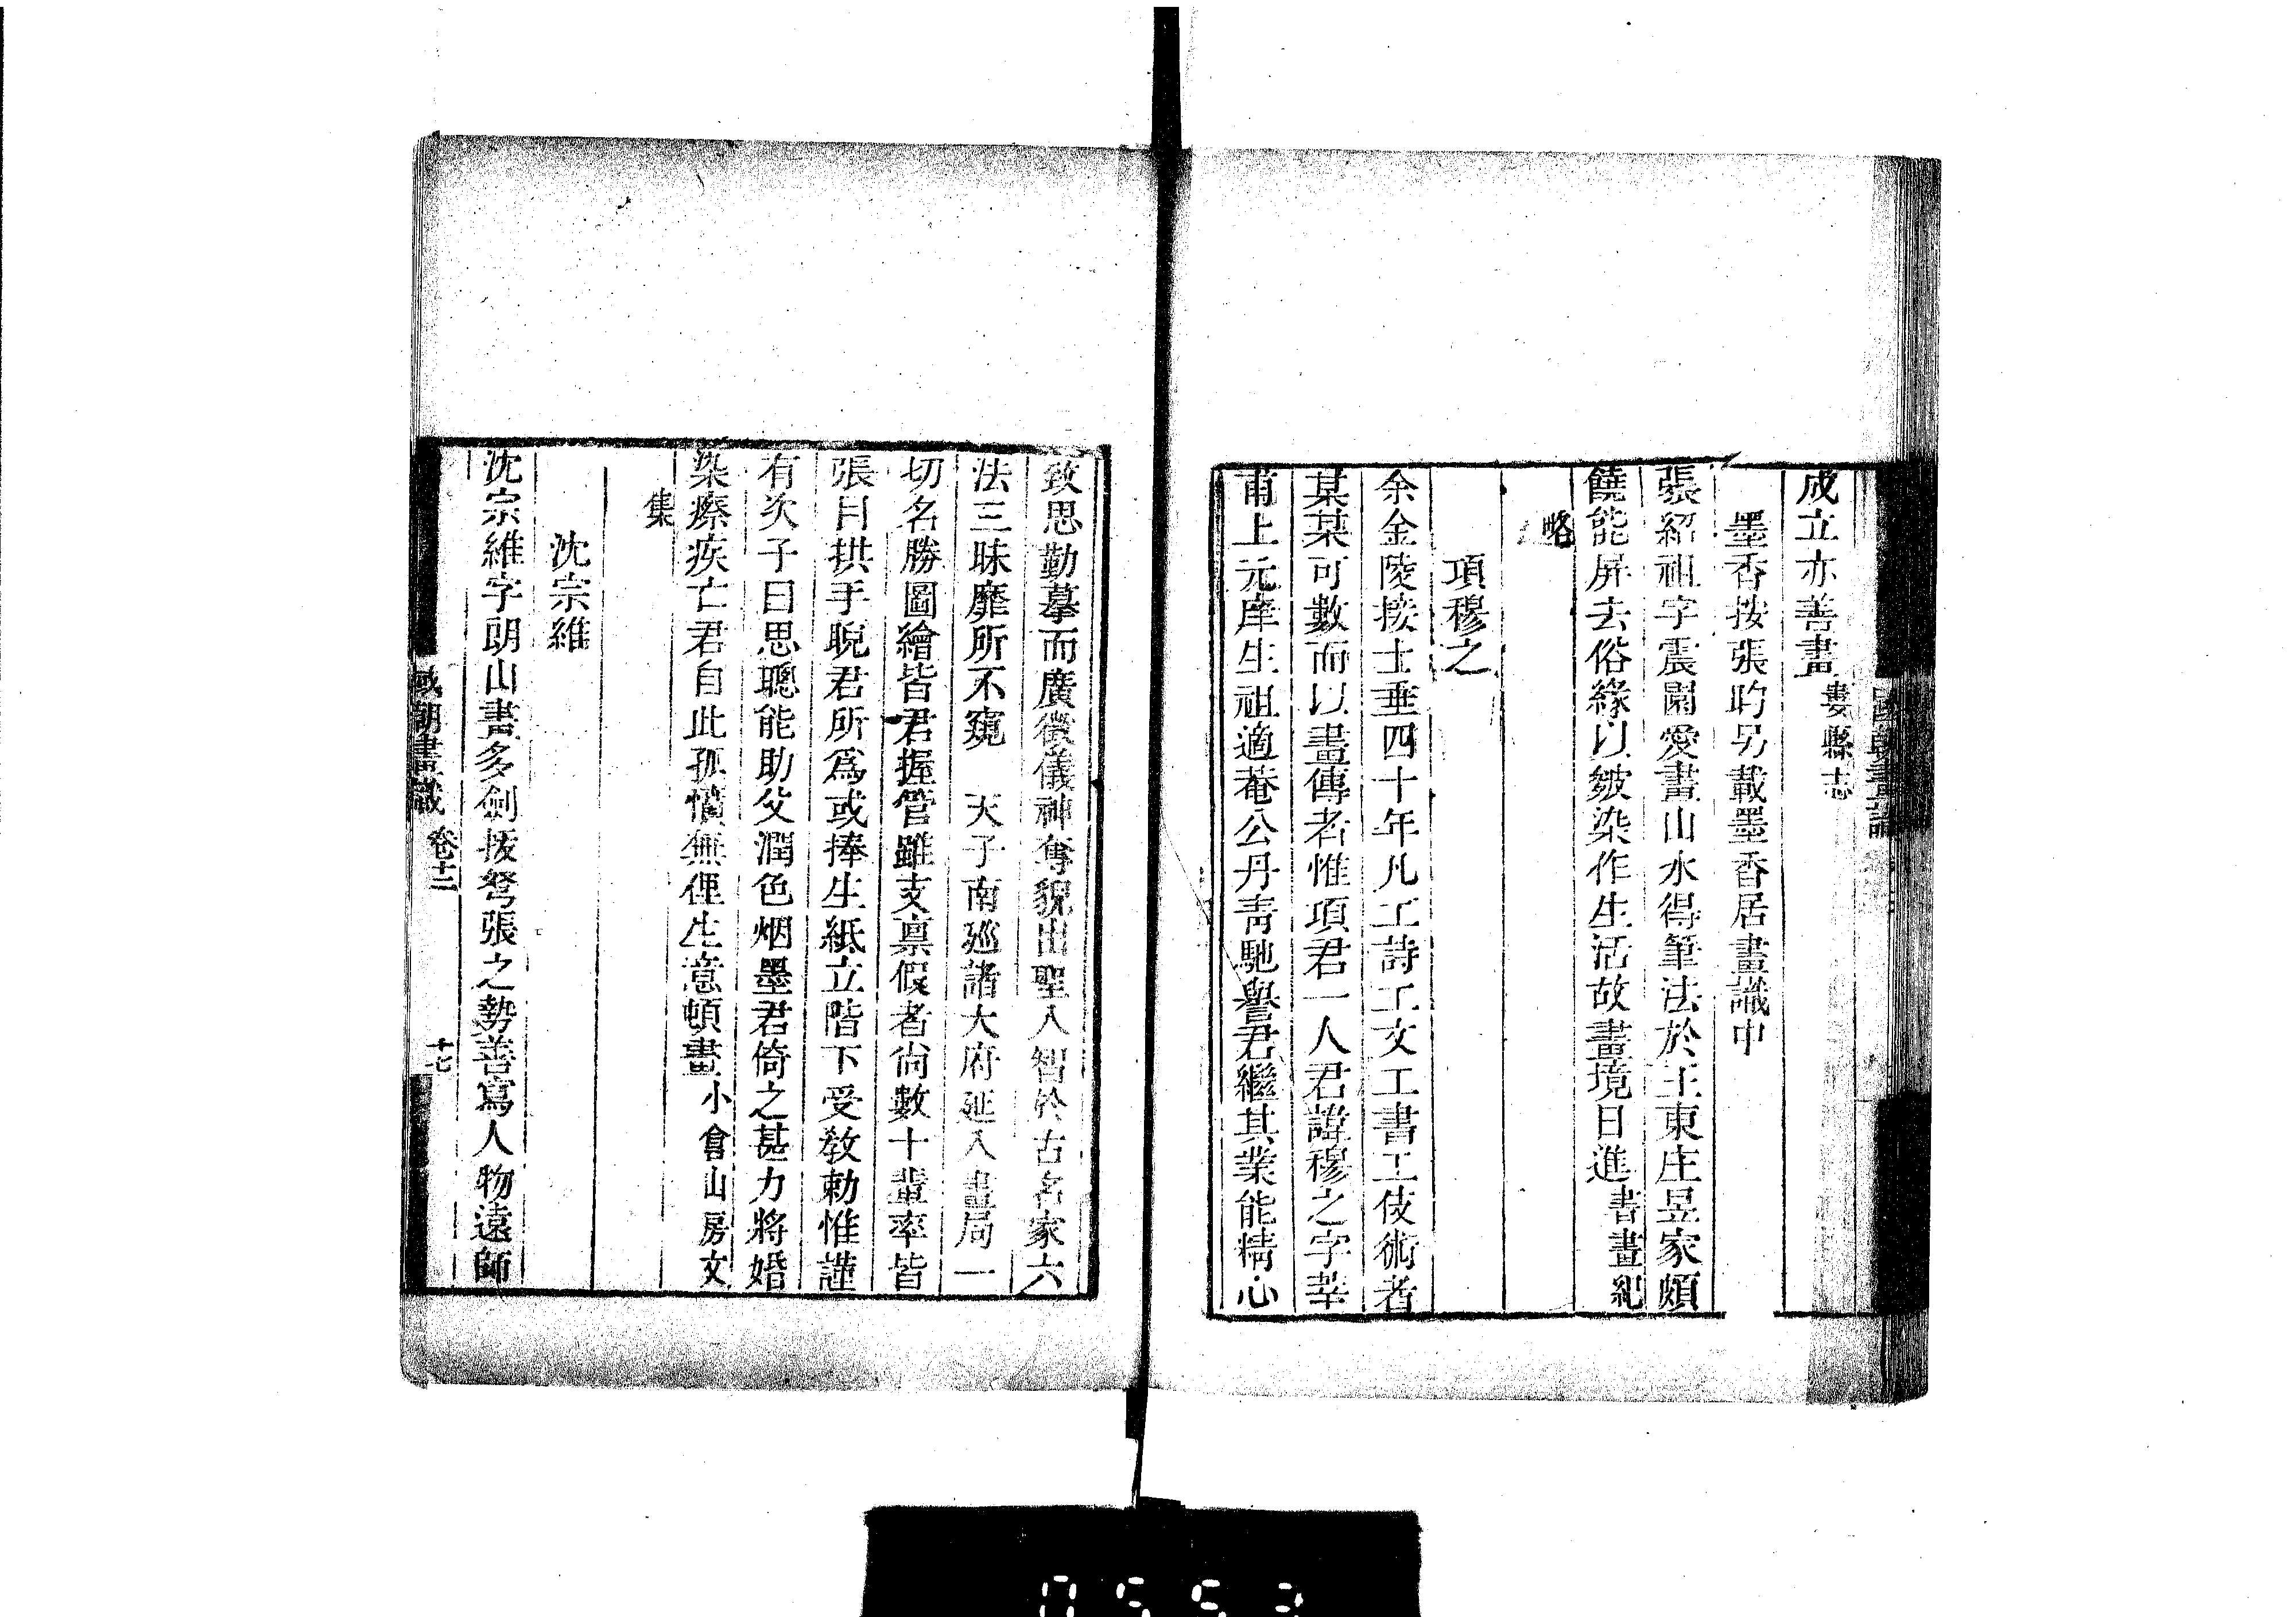 成立亦善畫婁縣志
墨香按張昀另載墨香居畫識中
張紹祖字震園愛畫山水得筆法於王東庄昱家頗
饒能屏去俗緣以皴染作生活故畫境日進書畫紀
略
項穆之
余金陵挨士垂四十年凡工詩工文工書工伎術者
某某可數而以畫傳者惟項君一人君諱穆之字莘
甫上元庠生祖適菴公丹青馳譽君繼其業能精心
致思勤摹而廣徵儀神奪貌出聖入智於古名家六
法三昧靡所不窺 天子南廵諸大府延入畫局一
切名勝圖繪皆君握管雖支禀假者尚數十輩率皆
張目拱手睨君所為或捧生紙立階下受敎勅惟謹
有次子曰思聰能助父潤色烟墨君倚之甚力將婚
染瘵疾亡君自此孤憤無俚生意頓盡小倉山房文
集
沈宗維
沈宗維字朗山畫多劍拔弩張之勢善寫人物遠師
國朝畫識 卷十二 十七